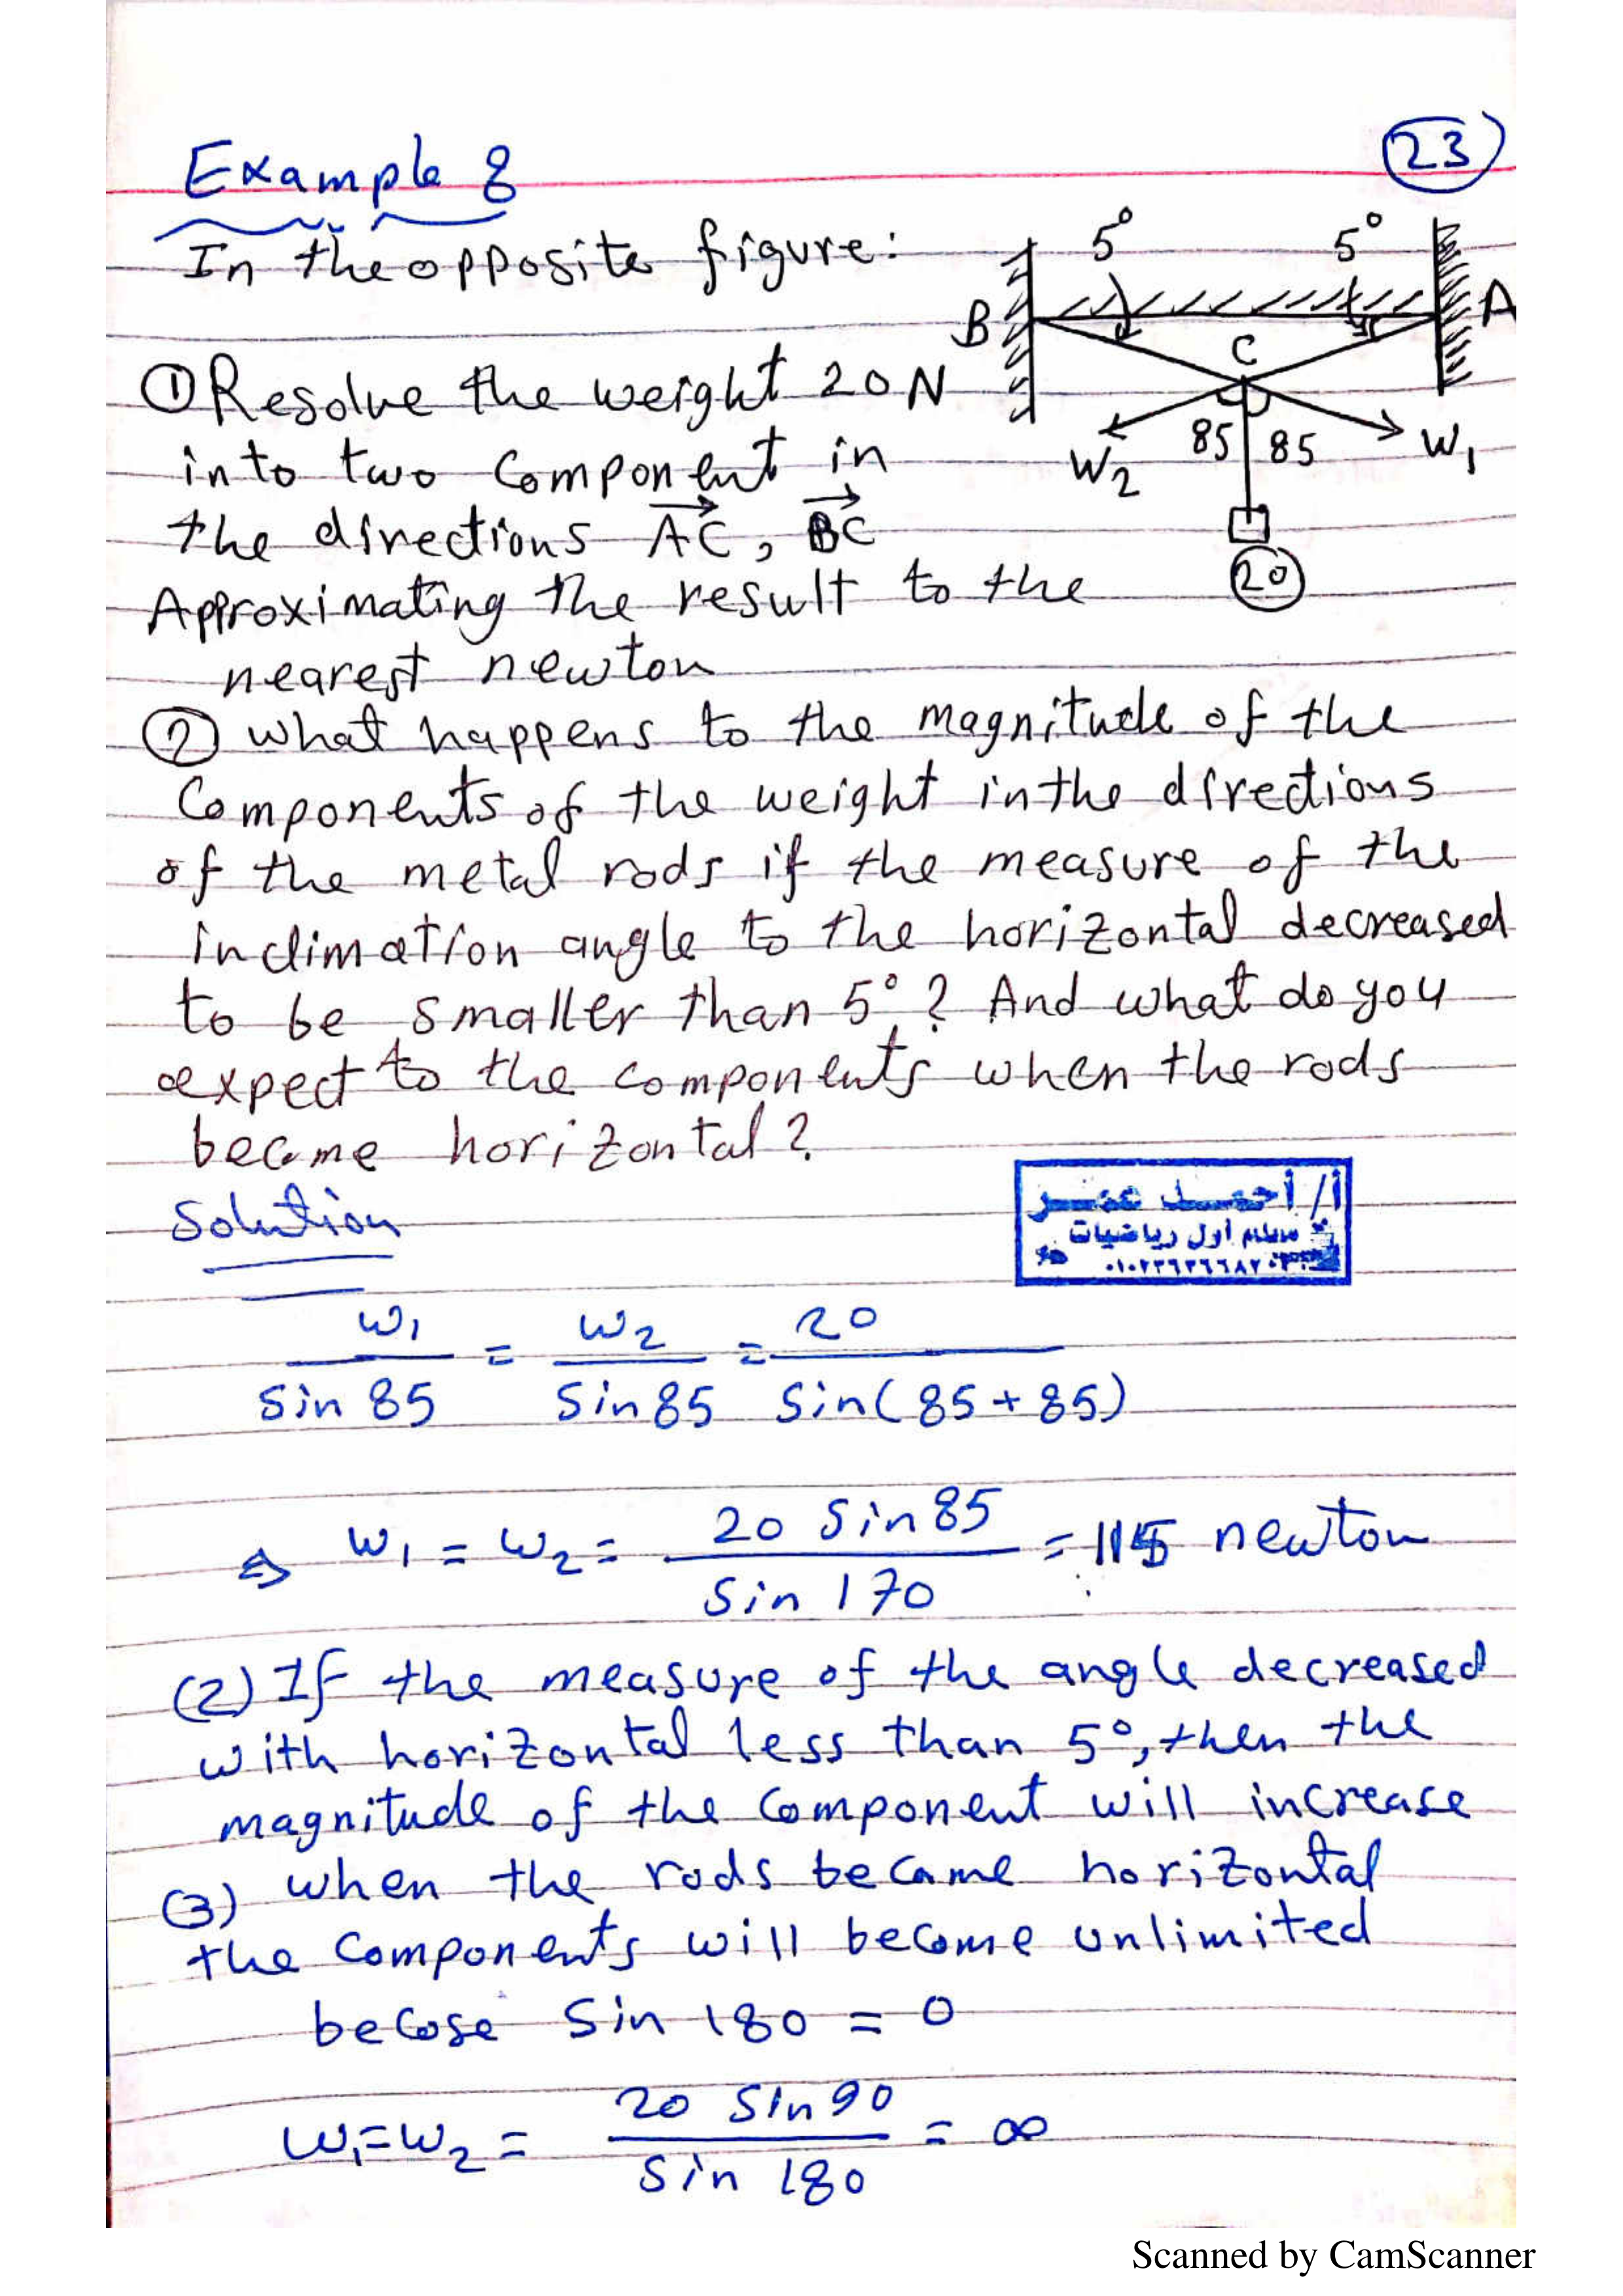 23
Example 8
In the opposite figure:
5° 5°
B A
C
① Resolve the weight 20 N
85 85
W2 W1
into two component in
the directions AC, BC
20
Approximating the result to the
nearest newton
② what happens to the magnitude of the
Components of the weight in the directions
of the metal rods if the measure of the
inclimation angle to the horizontal decreased
to be smaller than 5°? And what do you
expect to the components when the rods
become horizontal?
أ/ أحمد عمر
معلم أول رياضيات
Solution
W1 / Sin 85 = W2 / Sin 85 = 20 / Sin(85+85)
⇒ W1 = W2 = 20 Sin 85 / Sin 170 = 115 newton
(2) If the measure of the angle decreased
with horizontal less than 5°, then the
magnitude of the component will increase
(3) when the rods became horizontal
the components will become unlimited
becose Sin 180 = 0
W1 = W2 = 20 Sin 90 / Sin 180 = ∞
Scanned by CamScanner